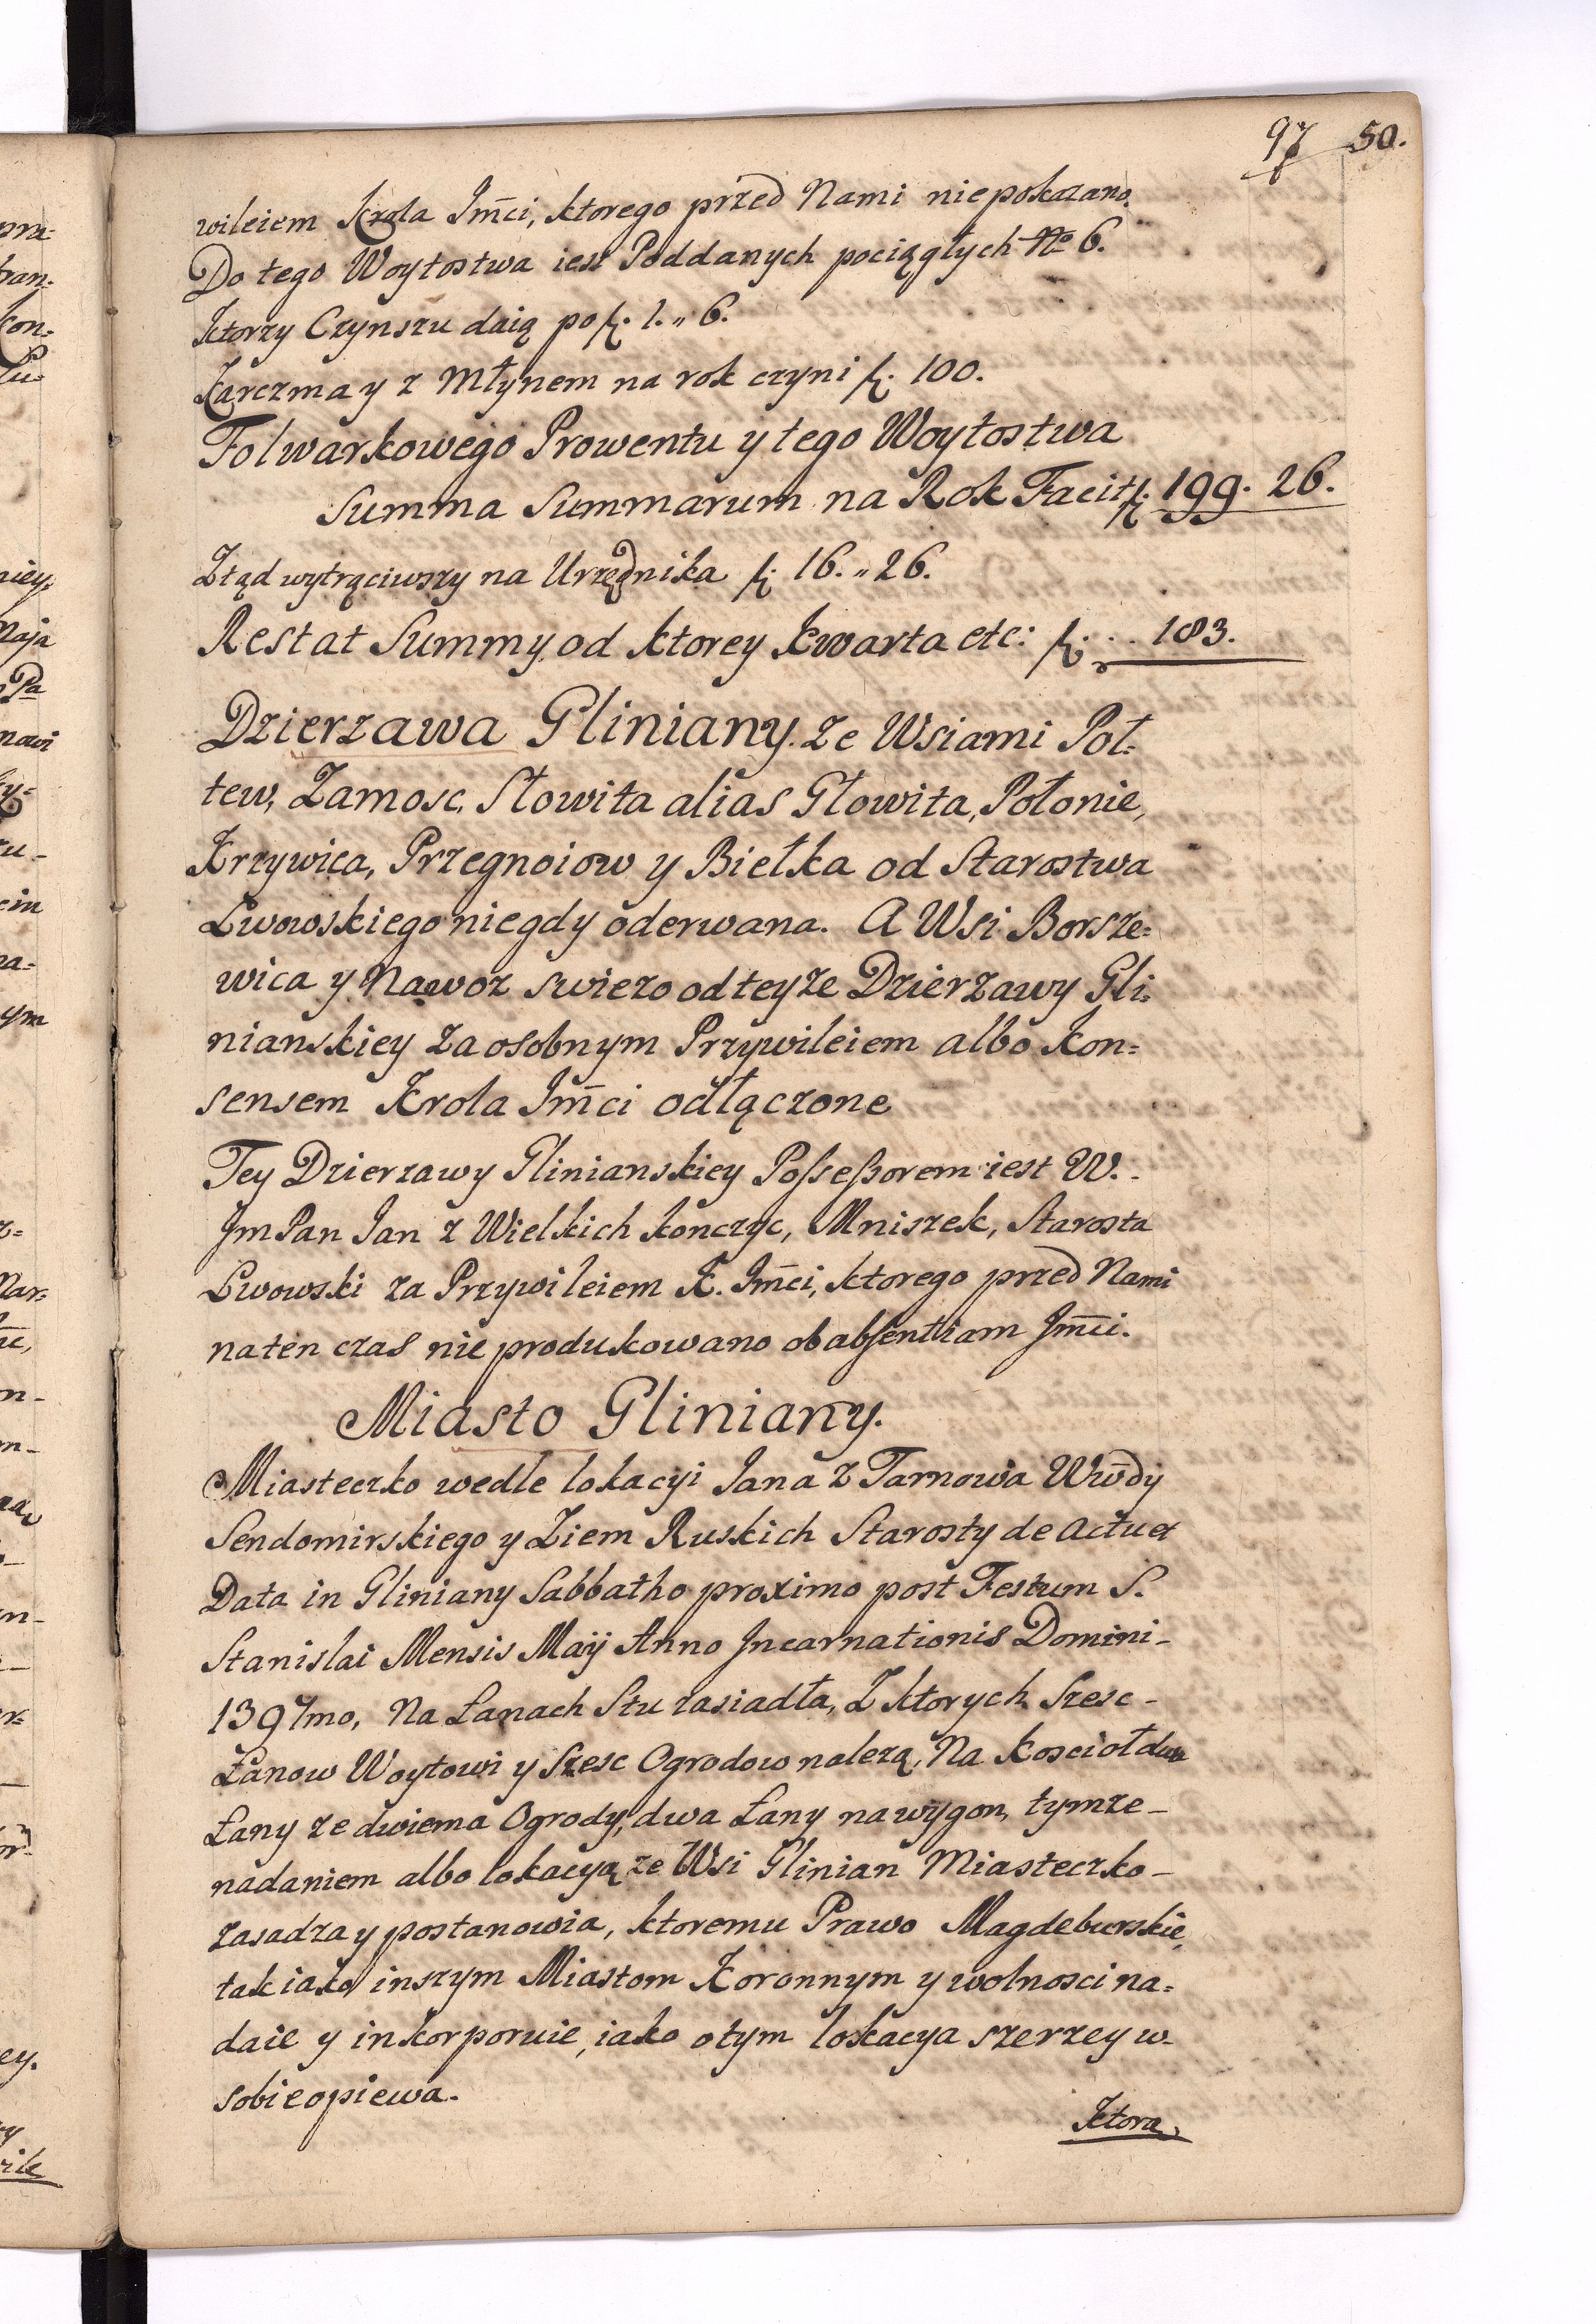 97 50.
wileiem Krola Jm̃ci, ktorego przed Nami niepokazano.
Do tego Woytostwa iest Poddanych pociągłych No 6.
Ktorzy Czynszu daią po f. 1. „ 6.
Karczma y z Młynem na rok czyni f. 100.
Folwarkowego Prowentu y tego Woytostwa
Summa Summarum na Rok Facit f. 199. 26.
Ztąd wytrąciwszy na Urzędnika f. 16. „ 26.
Restat Summy od ktorey kwarta etc: f. . . 183.
Dzierzawa Gliniany. ze Wsiami Poł=
tew, Zamosc, Słowita alias Głowita, Połonie,
Krzywica, Przegnoiow y Biełka od Starostwa
Lwowskiego niegdy oderwana. A Wsi Borsze=
wica y Nawoz swiezo od teyze Dzierzawy Gli=
nianskiey za osobnym Przywileiem albo kon=
sensem Krola Jm̃ci odłączone
Tey Dzierzawy Glinianskiey Possessorem iest W.
Jm Pan Jan z Wielkich konczyc, Mniszek, Starosta
Lwowski za Przywileiem K. Jm̃ci, ktorego przed Nami
naten czas nie produkowano ob absentiam Jm̃ci.
Miasto Gliniany.
Miasteczko wedle lokacyi Jana z Tarnowa Ww̃dy
Sendomirskiego y Ziem Ruskich Starosty de Actu et
Data in Gliniany Sabbatho proximo post Festum S.
Stanislai Mensis Maÿ Anno Incarnationis Domini-
1397mo, Na Łanach Stu zasiadła, Z ktorych Szesc-
Łanow Woytowi y Szesc Ogrodow nalezą, Na kosciołdwa
Łany ze dwiema Ogrody, dwa Łany na wygon, tymze-
nadaniem albo lokacyą ze Wsi Glinian Miasteczko-
zasadza y postanowia, ktoremu Prawo Magdeburskie,
tak iako inszym Miastom Koronnym y wolnosci na=
daie y inkorporuie, iako otym lokacya szerzey w-
sobie opiewa.
Ktora,